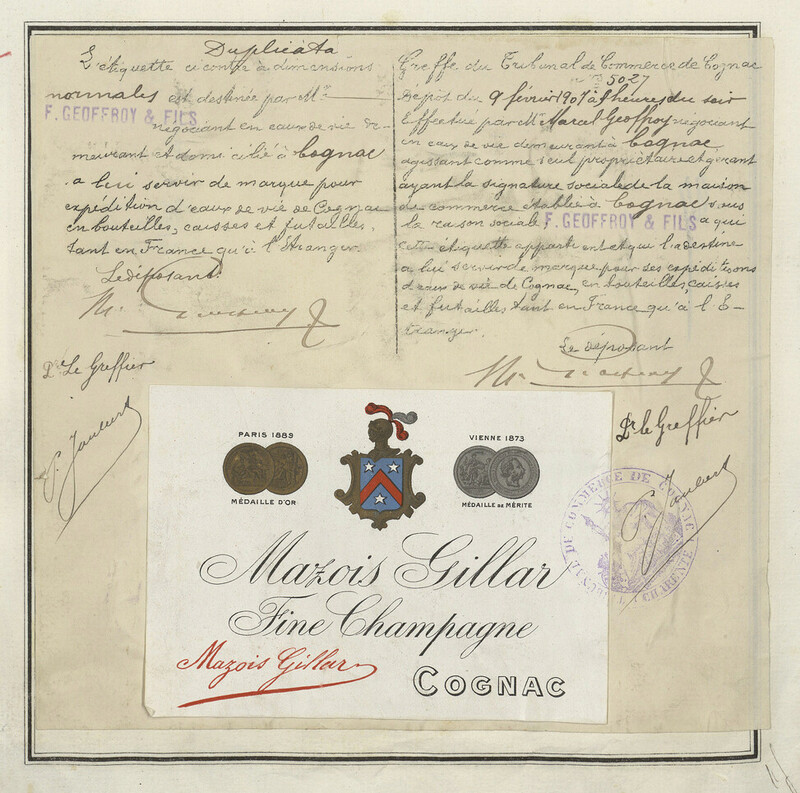 Duplicata
L'étiquette ci contre à dimensions
normales est destinée par Mr
F. GEOFFROY & FILS
négociant en eaux de vie de-
meurant et domicilié à Cognac
a lui servir de marque pour
expédition d'eaux de vie de Cognac
en bouteilles, caisses et futailles,
tant en France qu'à l'étranger.
Le déposant
Pr Le Greffier
Greffe du Tribunal de Commerce de Cognac
No 5027
Dépôt du 9 février 1907 à heures du soir
Effectué par M. Marcel Geoffroy négociant
en eaux de vie demeurant à Cognac
agissant comme seul propriétaire et gérant
ayant la signature sociale de la maison
de commerce établie à Cognac sous
la raison sociale, F. GEOFFROY & FILS a qui
cette étiquette appartient et qui l'a destine
a lui servir de marque pour ses expéditions
d'eaux de vie de Cognac, en bouteilles, caisses
et futailles tant en France qu'à l'E-
tranger.
Le déposant
Pr le Greffier
PARIS 1889
MÉDAILLE D'OR
VIENNE 1873
MÉDAILLE DE MÉRITE
Mazois Gillar
Fine Champagne
Mazois Gillar
COGNAC
DE COMMERCE DE COGNAC
CHARENTE